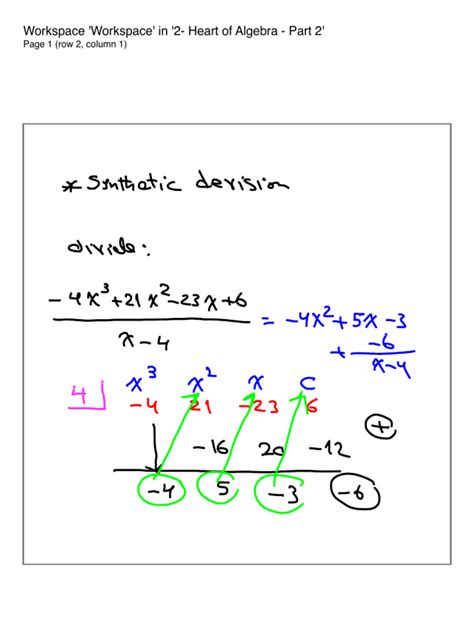 Workspace 'Workspace' in '2- Heart of Algebra - Part 2'
Page 1 (row 2, column 1)
* Synthatic devision
divide:
-4x³+21x²-23x+6 / x-4 = -4x²+5x-3 + -6/x-4
x³ x² x c
4 -4 21 -23 6
+
-16 20 -12
-4 5 -3 -6